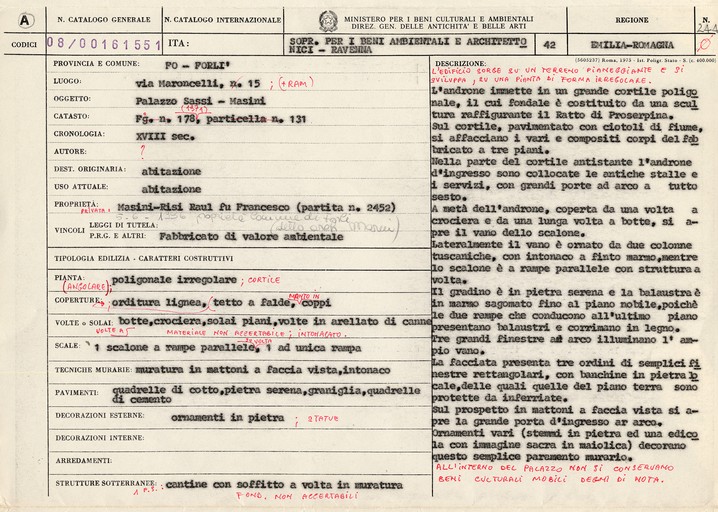 A
N. CATALOGO GENERALE
N. CATALOGO INTERNAZIONALE
MINISTERO PER I BENI CULTURALI E AMBIENTALI
DIREZ. GEN. DELLE ANTICHITA' E BELLE ARTI
REGIONE
N.
CODICI
08/00161551
ITA:
SOPR. PER I BENI AMBIENTALI E ARCHITETTO
NICI - RAVENNA
42
EMILIA-ROMAGNA
(3605237) Roma, 1975 - Ist. Poligr. Stato - S. (c. 400.000)
PROVINCIA E COMUNE: FO - FORLI'
LUOGO: via Maroncelli, n. 15 ; (TRAM.)
OGGETTO: Palazzo Sassi - Masini
(1371)
CATASTO: Fg. n. 178, particella n. 131
CRONOLOGIA: XVIII sec.
AUTORE: ?
DEST. ORIGINARIA: abitazione
USO ATTUALE: abitazione
PROPRIETÀ: Masini-Risi Raul fu Francesco (partita n. 2452)
PRIVATA:
VINCOLI
LEGGI DI TUTELA:
P.R.G. E ALTRI: Fabbricato di valore ambientale
TIPOLOGIA EDILIZIA - CARATTERI COSTRUTTIVI
PIANTA: poligonale irregolare ; CORTILE
(ANGOLARE)
MANTO IN
COPERTURE: orditura lignea, tetto a falde, coppi
VOLTE o SOLAI: botte,crociera,solai piani,volte in arellato di canne
VOLTE A
MATERIALE NON ACCERTABILE ; INTONACATO.
SCALE: 1 scalone a rampe parallele, 1 ad unica rampa
TECNICHE MURARIE: muratura in mattoni a faccia vista,intonaco
PAVIMENTI: quadrelle di cotto,pietra serena,graniglia,quadrelle
di cemento
DECORAZIONI ESTERNE: ornamenti in pietra ; STATUE
DECORAZIONI INTERNE:
ARREDAMENTI:
STRUTTURE SOTTERRANEE: cantine con soffitto a volta in muratura
1 P.S. :
FOND. NON ACCERTABILI
DESCRIZIONE:
L'EDIFICIO SORGE SU UN TERRENO PIANEGGIANTE E SI
SVILUPPA, SU UNA PIANTA DI FORMA IRREGOLARE.
L'androne immette in un grande cortile poligo
nale, il cui fondale è costituito da una scul
tura raffigurante il Ratto di Proserpina.
Sul cortile, pavimentato con ciotoli di fiume,
si affacciano i vari e compositi corpi del fab
bricato a tre piani.
Nella parte del cortile antistante l'androne
d'ingresso sono collocate le antiche stalle e
i servizi, con grandi porte ad arco a tutto
sesto.
A metà dell'androne, coperta da una volta a
crociera e da una lunga volta a botte, si a-
pre il vano dello scalone.
Lateralmente il vano è ornato da due colonne
tuscaniche, con intonaco a finto marmo,mentre
lo scalone è a rampe parallele con struttura a
volta.
Il gradino è in pietra serena e la balaustra è
in marmo sagomato fino al piano nobile,poichè
le due rampe che conducono all'ultimo piano
presentano balaustri e corrimano in legno.
Tre grandi finestre ad arco illuminano l'am
pio vano.
La facciata presenta tre ordini di semplici fi
nestre rettangolari, con banchine in pietra lo
cale,delle quali quelle del piano terra sono
protette da inferriate.
Sul prospetto in mattoni a faccia vista si a-
pre la grande porta d'ingresso ar arco.
Ornamenti vari (stemmi in pietra ed una edico
la con immagine sacra in maiolica) decorano
questo semplice paramento murario.
ALL'INTERNO DEL PALAZZO NON SI CONSERVANO
BENI CULTURALI MOBILI DEGNI DI NOTA.